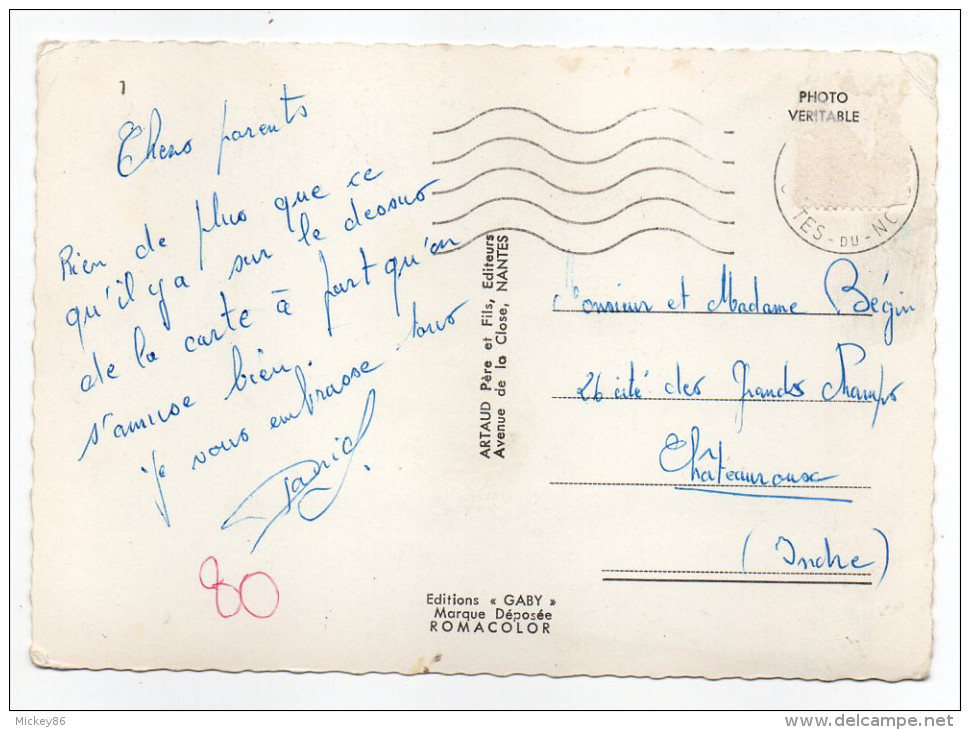 1
Chers parents
Rien de plus que ce
qu'il y a sur le dessus
de la carte à part qu'on
s'amuse bien.
je vous embrasse tous
Daniel
80
ARTAUD Père et Fils, Editeurs
Avenue de la Close, NANTES
Editions « GABY »
Marque Déposée
ROMACOLOR
PHOTO
VERITABLE
TES - DU - NO
Monsieur et Madame Bégin
26 cité des Grands Champs
Châteauroux
(Indre)
Mickey86
delcampe.net